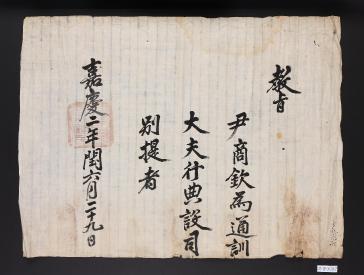 教旨
尹商欽爲通訓
大夫行典設司
別提者
嘉慶二年閏六月二十九日